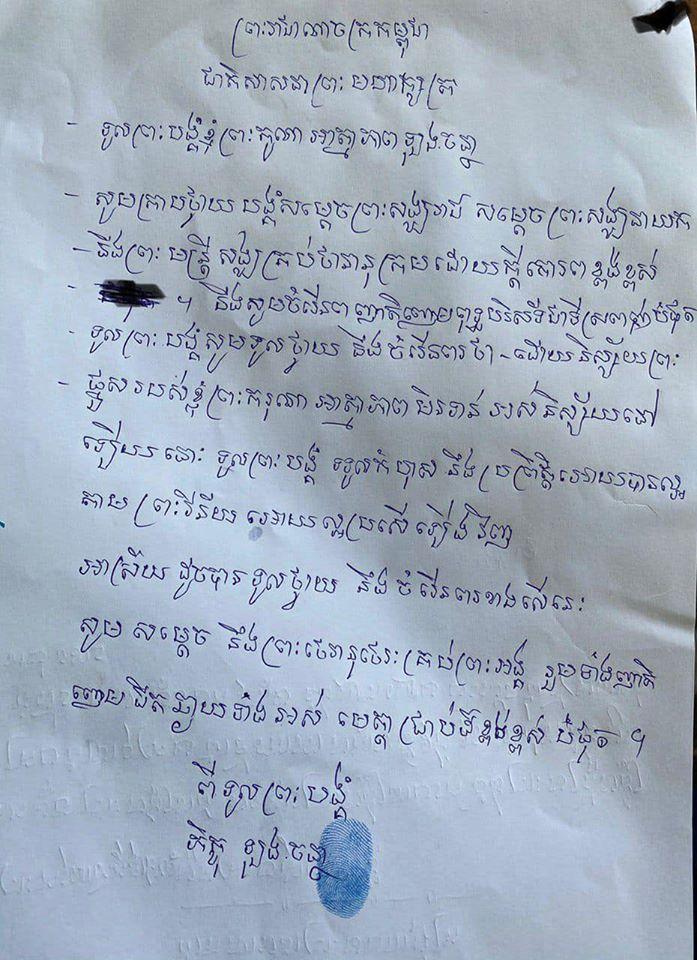 ព្រះរាជាណាចក្រកម្ពុជា
ជាតិសាសនាព្រះមហាក្សត្រ
- ទូលព្រះបង្គំខ្ញុំព្រះករុណា អាត្មាភាព ឡុង.ចន្ថា
- សូមក្រាបថ្វាយ បង្គំសម្ដេចព្រះសង្ឃរាជ សម្ដេចព្រះសង្ឃនាយក
- នឹងព្រះ មន្ត្រី សង្ឃ គ្រប់ថានានុក្រម ដោយក្ដីគោរព ខ្ពង់ខ្ពស់
- ។ នឹងសូមចំរើនពរ ញាតិញោមពុទ្ធបរិស័ទជាទីស្រលាញ់បំផុត
- ទូលព្រះ បង្គំសូមទូលថ្វាយ នឹង ចំរើនពរថា - ដោយនិស្ស័យព្រះ
- ផ្នួស របស់ខ្ញុំព្រះករុណា អាត្មាភាព មិនទាន់ អស់និស្ស័យនៅ
ឡើយនោះ ទូលព្រះបង្គំ ទទួលកំហុស នឹងប្រព្រឹត្តិអោយបានល្អ
តាម ព្រះវិន័យ អោយល្អប្រសើរឡើងវិញ
អាស្រ័យ ដូចបាន ទូលថ្វាយ នឹង ចំរើនពរខាងលើនេះ
សូម សម្ដេច នឹងព្រះថេរានុថេរៈ គ្រប់ព្រះអង្គ រួមទាំងញាតិ
ញោម ជិត ឆ្ងាយ ទាំង អស់ មេត្តា ជ្រាបដ៏ខ្ពង់ខ្ពស់ បំផុត ។
ពីទូលព្រះបង្គំ
ភិក្ខុ ឡុង.ចន្ថា